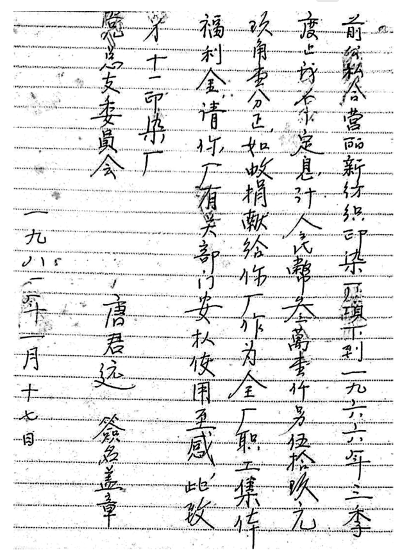 前公私合营丽新纺织印染厂項下到一九六六年三季
度止我名下定息，計人民幣叁萬壹仟另伍拾玖元
玖角壹分正，如數捐献给你厂作为全厂职工集体
福利金，请你厂有关部门安排使用至感，此致
才十一印染厂
党总支委員会
唐君远 簽名盖章
一九八二年一月十七日